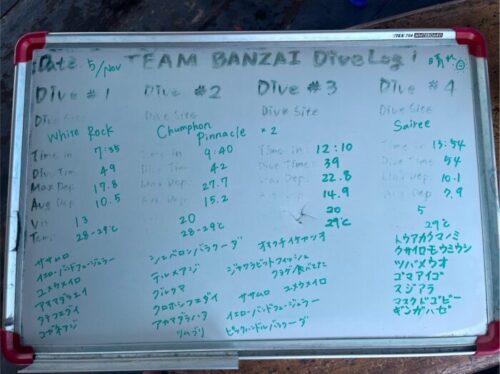 Date 5/Nov TEAM BANZAI Dive Log! 晴れ
Dive #1 Dive #2 Dive #3 Dive #4
Dive Site Dive Site Dive Site Dive Site
White Rock Chumphon Pinnacle ×2 Sairee
Time in 7:35 Time in 9:40 Time in 12:10 Time in 13:54
Dive Time 49 Dive Time 42 Dive Time 39 Dive Time 54
Max Dep. 17.8 Max Dep. 27.7 Max Dep. 22.8 Max Dep. 10.1
Avg Dep. 10.5 Avg Dep. 15.2 Avg Dep. 14.9 Avg Dep. 7.9
13 20 20 5
Tem 28-29℃ 28-29℃ 29℃ 29℃
ササムロ
イエローバンドフュージラー
ユメウメイロ
コガネアジ
シェブロンバラクーダ
テルメアジ
グルクマ
クロホシフエダイ
アカマダラハタ
ツムブリ
ジャワラビットフィッシュ
ササムロ ユメウメイロ
イエローバンドフュージラー
ピックハンドルバラクーダ
トウアカクマノミ
クサイロモウミウシ
ツバメウオ
ゴマアイゴ
スジアラ
マスクドゴビー
ギンガハゼ